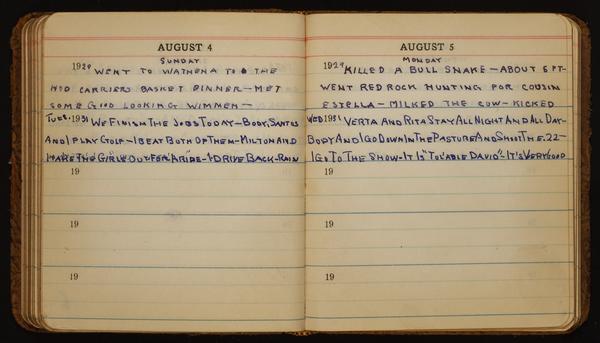 AUGUST 4
SUNDAY
1929 WENT TO WATHENA TO THE
HOD CARRIERS BASKET DINNER—MET
SOME GOOD LOOKING WIMMEN—
TUES. 1931 WE FINISH THE JOBS TODAY—BODY, SANTOS
AND I PLAY GOLF—I BEAT BOTH OF THEM—MILTON AND
I TAKE THE GIRLS OUT FOR A RIDE—I DRIVE BACK—RAIN
19
19
19
AUGUST 5
MONDAY
1929 KILLED A BULL SNAKE—ABOUT 5 FT-
WENT RED ROCK HUNTING FOR COUSIN
ESTELLA—MILKED THE COW—KICKED
WED 1931 VERTA AND RITA STAY ALL NIGHT AND ALL DAY-
BODY AND I GO DOWN IN THE PASTURE AND SHOOT THE .22—
I GO TO THE SHOW—IT IS "TOL'ABLE DAVID"—IT'S VERY GOOD
19
19
19